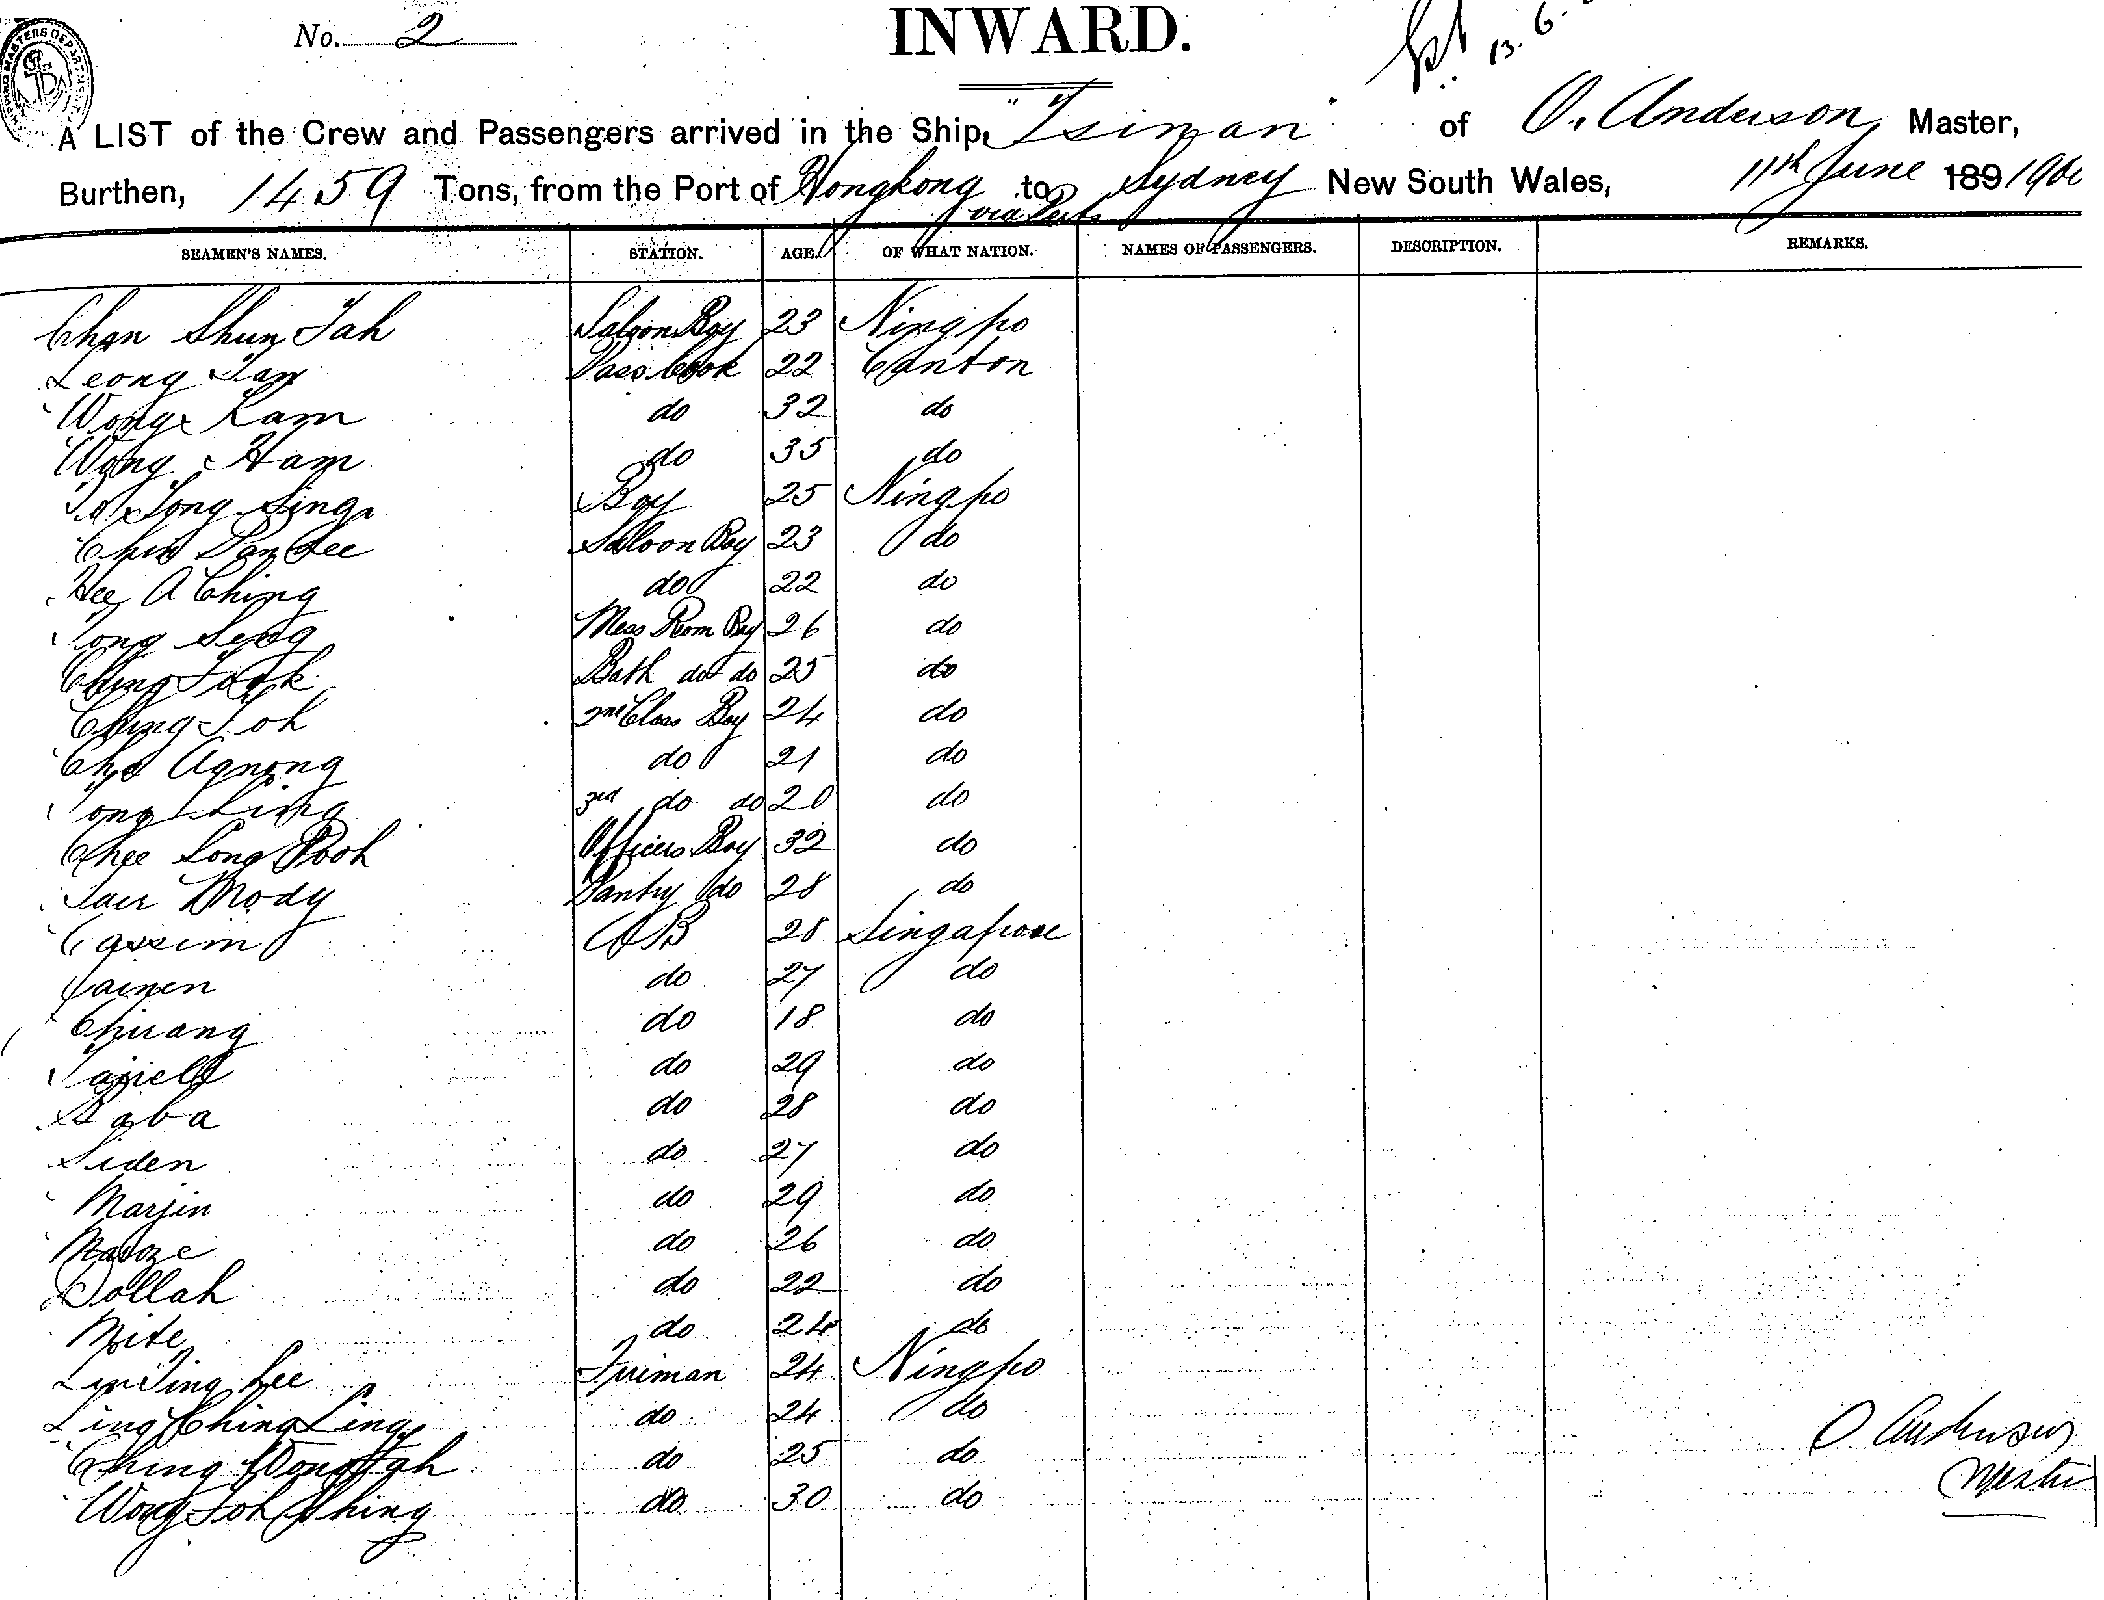 No. 2
INWARD.
13. 6.
A LIST of the Crew and Passengers arrived in the Ship, "Tsinan" of O. Anderson, Master,
Burthen, 1459 Tons, from the Port of Hongkong to Sydney New South Wales, 11th June 189 1900
via Ports
SEAMEN'S NAMES. STATION. AGE. OF WHAT NATION. NAMES OF PASSENGERS. DESCRIPTION. REMARKS.
Chan Shun Tah Saloon Boy 23 Ningpo
Leong Pass Cook 22 Canton
Wong Kam do 32 do
Wong Ham do 35 do
Tong Sing Boy 25 Ningpo
Saloon Boy 23 do
Hee A Ching do 22 do
Tong Seng Mess Room Boy 26 do
Ching Bath do do 25 do
Ching Foh 2nd Class Boy 24 do
Agnong do 21 do
Tong Ling 3rd do do 20 do
Chee Song Pooh Officers Boy 32 do
Mody Pantry do 28 do
Cassim AB 28 Singapore
Jainen do 27 do
Chuang do 18 do
do 29 do
Baba do 28 do
Siden do 27 do
Marjin do 29 do
do 26 do
Dollah do 22 do
do 24 do
Ling Lee Fireman 24 Ningpo
Ling Ching Ling do 24 do
Ching Wong Yah do 25 do
Wong Foh Shing do 30 do
O Anderson
Master